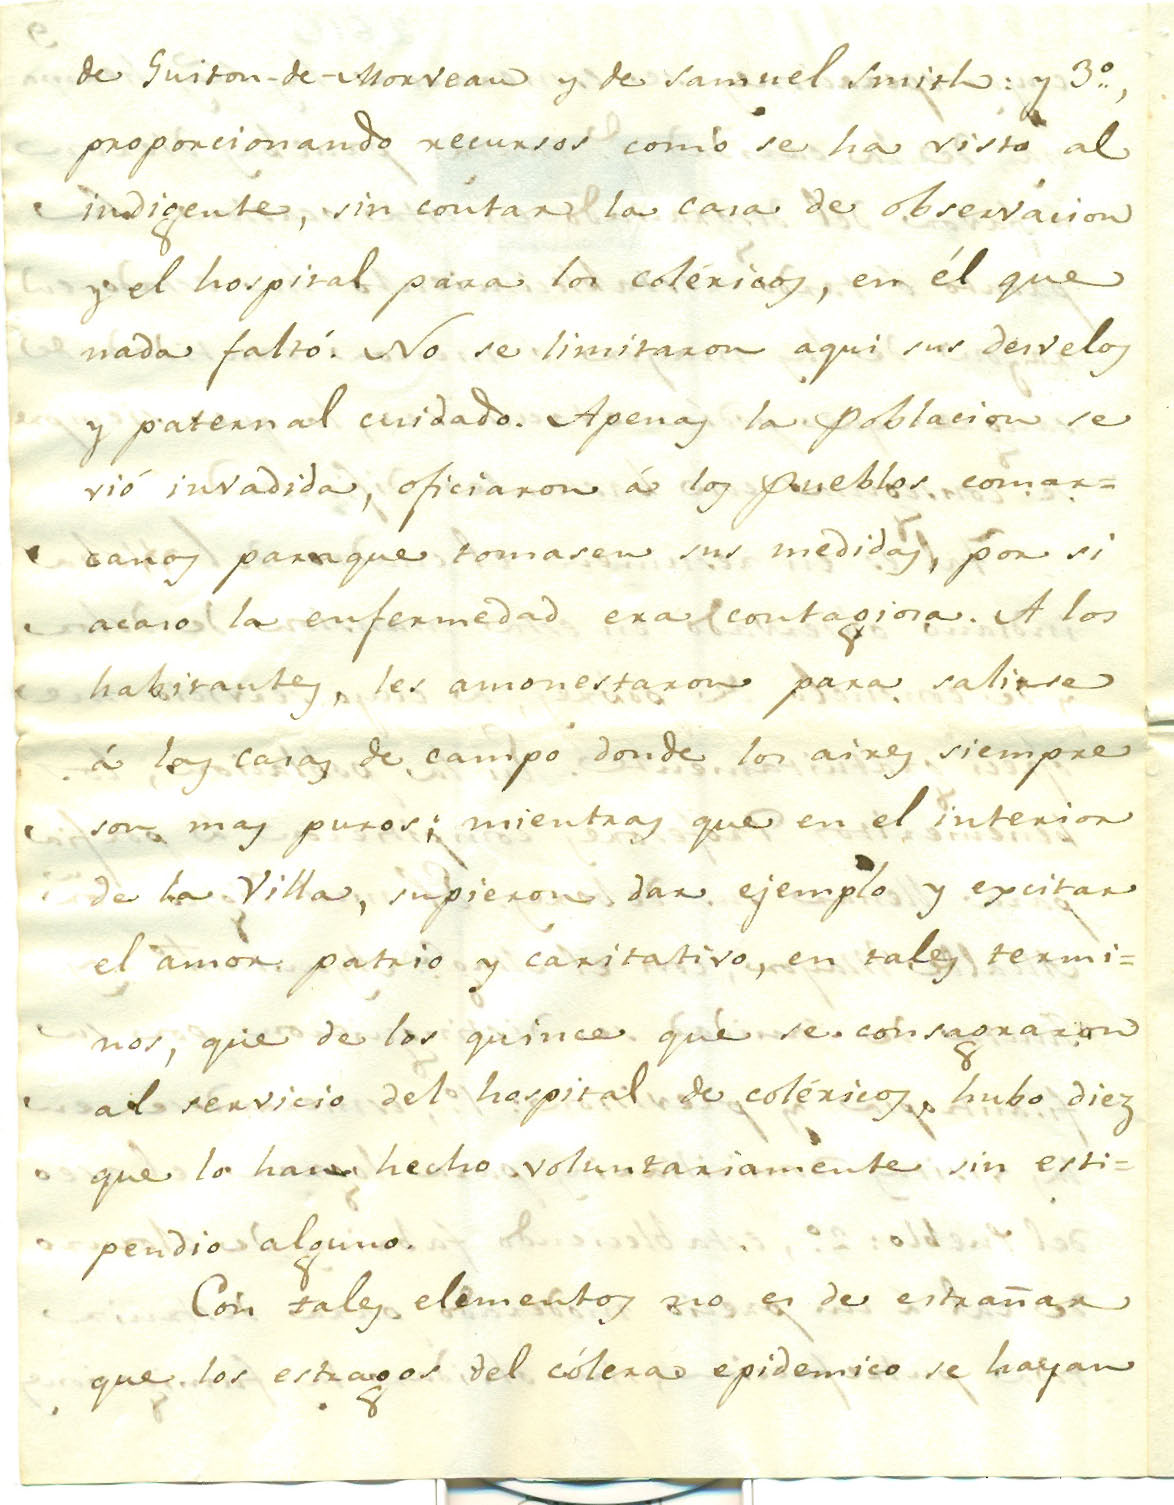 de Guiton-de-Morveau y de Samuel Smith: y 3º,
proporcionando recursos como se ha visto al
indigente, sin contar la casa de observacion
y el hospital para los coléricos, en él que
nada faltó. No se limitaron aqui sus desvelos
y paternal cuidado. Apenas la Poblacion se
vió invadida, oficiaron á los Pueblos comar=
canos paraque tomasen sus medidas, por si
acaso la enfermedad era contagiosa. A los
habitantes, les amonestaron para salirse
á las casas de campo donde los aires siempre
son mas puros; mientras que en el interior
de la Villa, supieron dar ejemplo y excitar
el amor patrio y caritativo, en tales termi=
nos, que de los quince que se consagraron
al servicio del hospital de coléricos, hubo diez
que lo han hecho voluntariamente sin esti=
pendio alguno.
Con tales elementos no es de estrañar
que los estragos del cólera epidemico se hayan